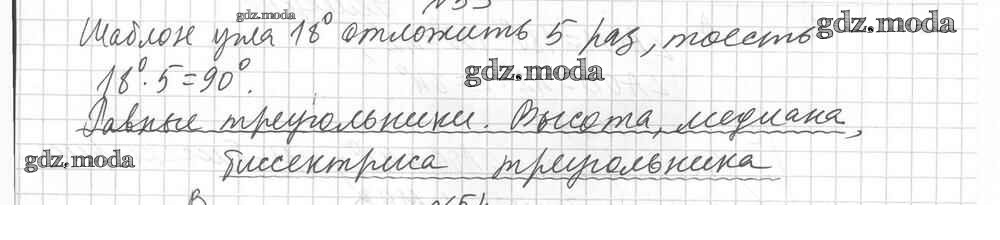 №53
gdz.moda
Шаблон угла 18° отложить 5 раз, тоесть gdz.moda
18°·5=90°. gdz.moda
Равные треугольники. Высота, медиана,
gdz.moda биссектриса треугольника
№54